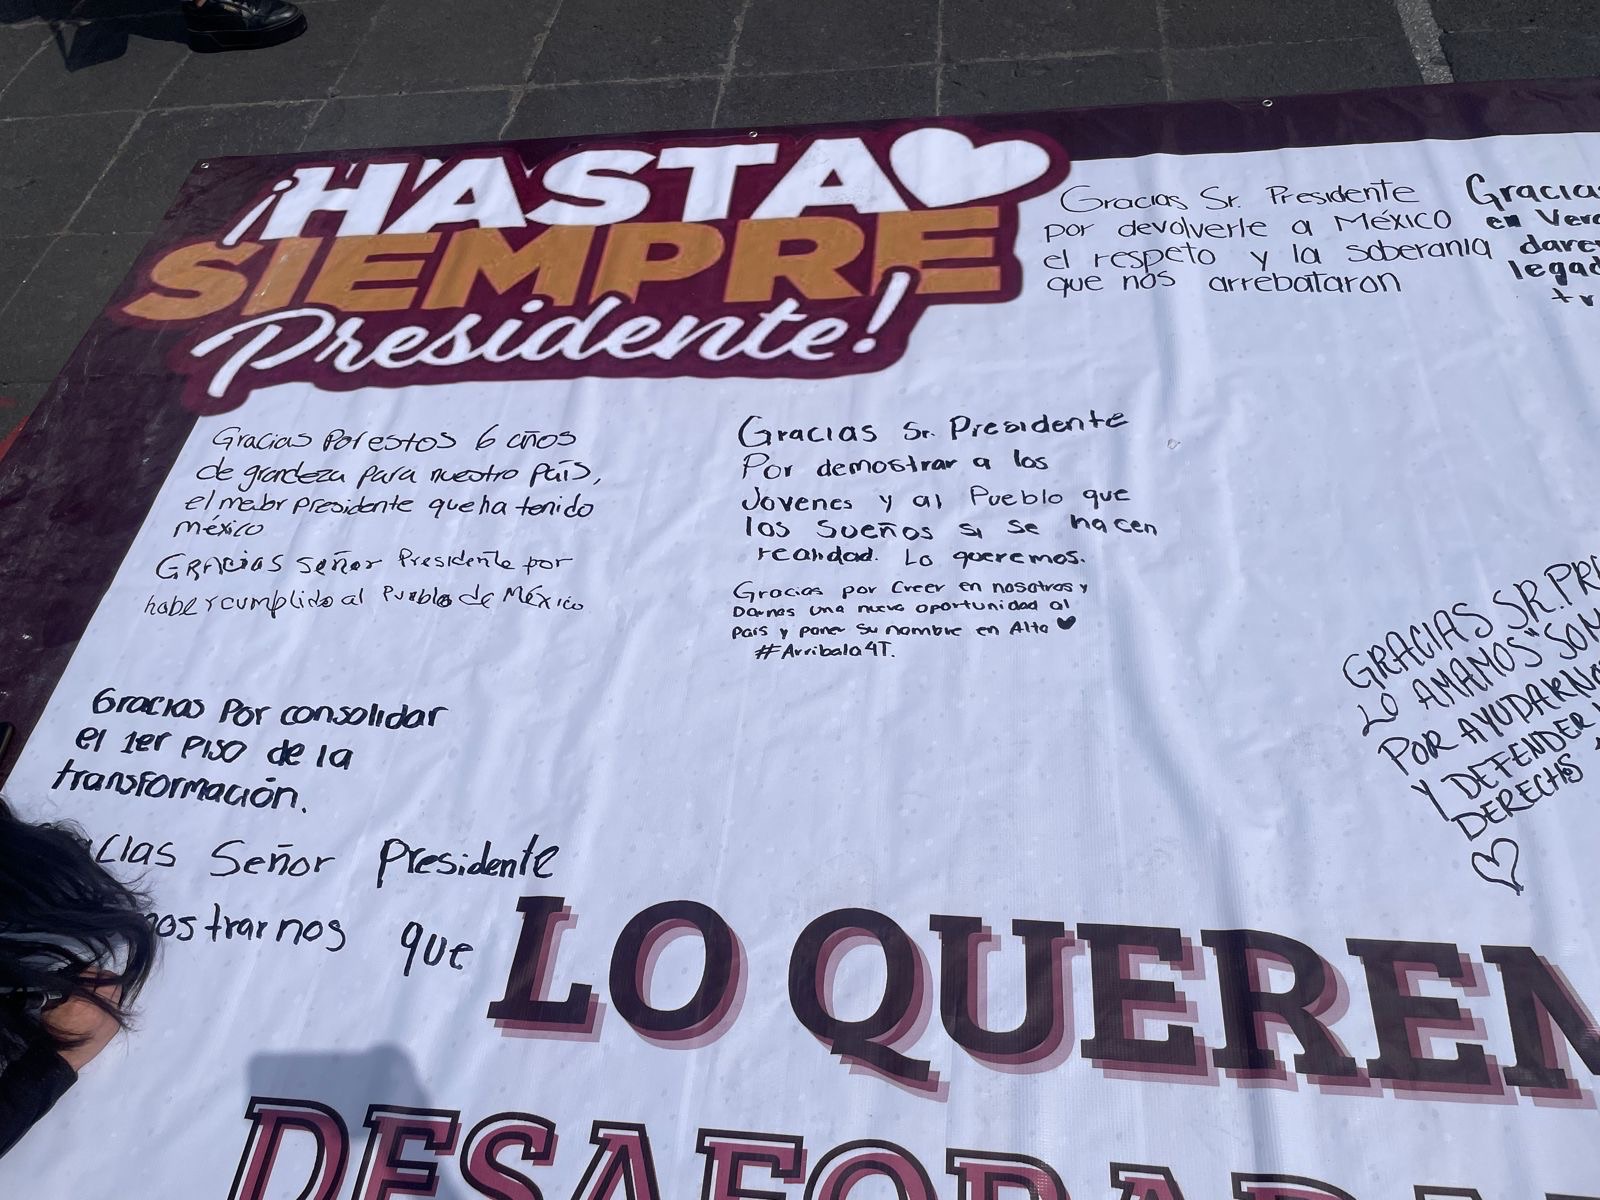 ¡HASTA
SIEMPRE
Presidente!
Gracias Sr. Presidente
por devolverle a México
el respeto y la soberanía
que nos arrebataron
Gracias
en
legad
Gracias Por estos 6 años
de grandeza para nuestro País,
el mejor presidente que ha tenido
México
Gracias señor Presidente por
haber cumplido al Pueblo de México
Gracias Sr. Presidente
Por demostrar a los
Jovenes y al Pueblo que
los Sueños si se hacen
realidad. Lo queremos.
Gracias por Creer en nosotros y
Darnos una nueva oportunidad al
país y poner su nombre en Alto
#Arribala4T.
Gracias Por consolidar
el 1er PISO de la
transformación.
cias Señor Presidente
ostrarnos que
GRACIAS SR. PR
LO AMAMOS "SOM
POR AYUDARN
Y DEFENDER
DERECHOS
LO QUEREM
DESAFORADA